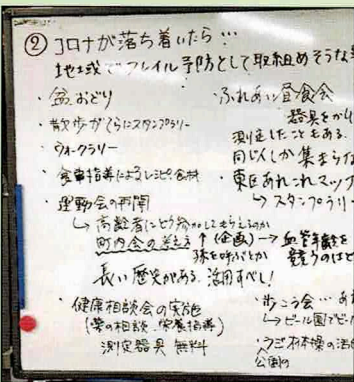 ② コロナが落ち着いたら…
地域でフレイル予防として取組めそうな
・盆おどり
・散歩がてらにスタンプラリー
・ウォークラリー
・食事指導によるレシピ、食料
・運動会の再開
↳ 高齢者にどう参加してもらえるのか
町内会の考え方 ↑(企画) → 血管年齢を
孫を呼ぶとか 競うのはど
長い歴史がある。活用すべし!
・健康相談会の実施
(薬の相談、栄養指導)
測定器具 無料
・ふれあい昼食会
器具をかり
測定したこともある。
同じ人しか集まらな
・東区あれこれマップ
↳ スタンプラリー
・歩こう会…あ
↳ ビール園でビー
・ラジオ体操の活
公園の